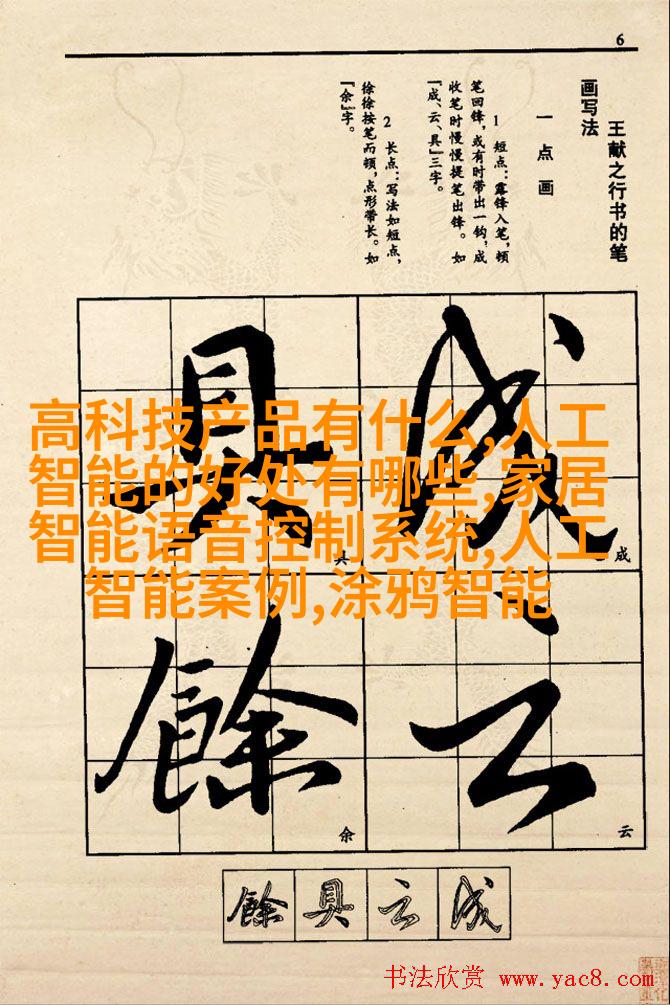 6
王献之行书的笔
画写法
一 点 画
1 短点：露锋入笔，顿
笔回锋，或有时带出一钩，成
收笔时慢慢提笔出锋。如
「成、云、具」三字。
2 长点：写法如短点，
徐徐按笔而顿，点形带长。如
「余」字。
成
具
云
餘
成
具
云
余
高科技产品有什么,人工
智能的好处有哪些,家居
智能语音控制系统,人工
智能案例,涂鸦智能
餘 具 云 成
书法欣赏 www.yac8.com